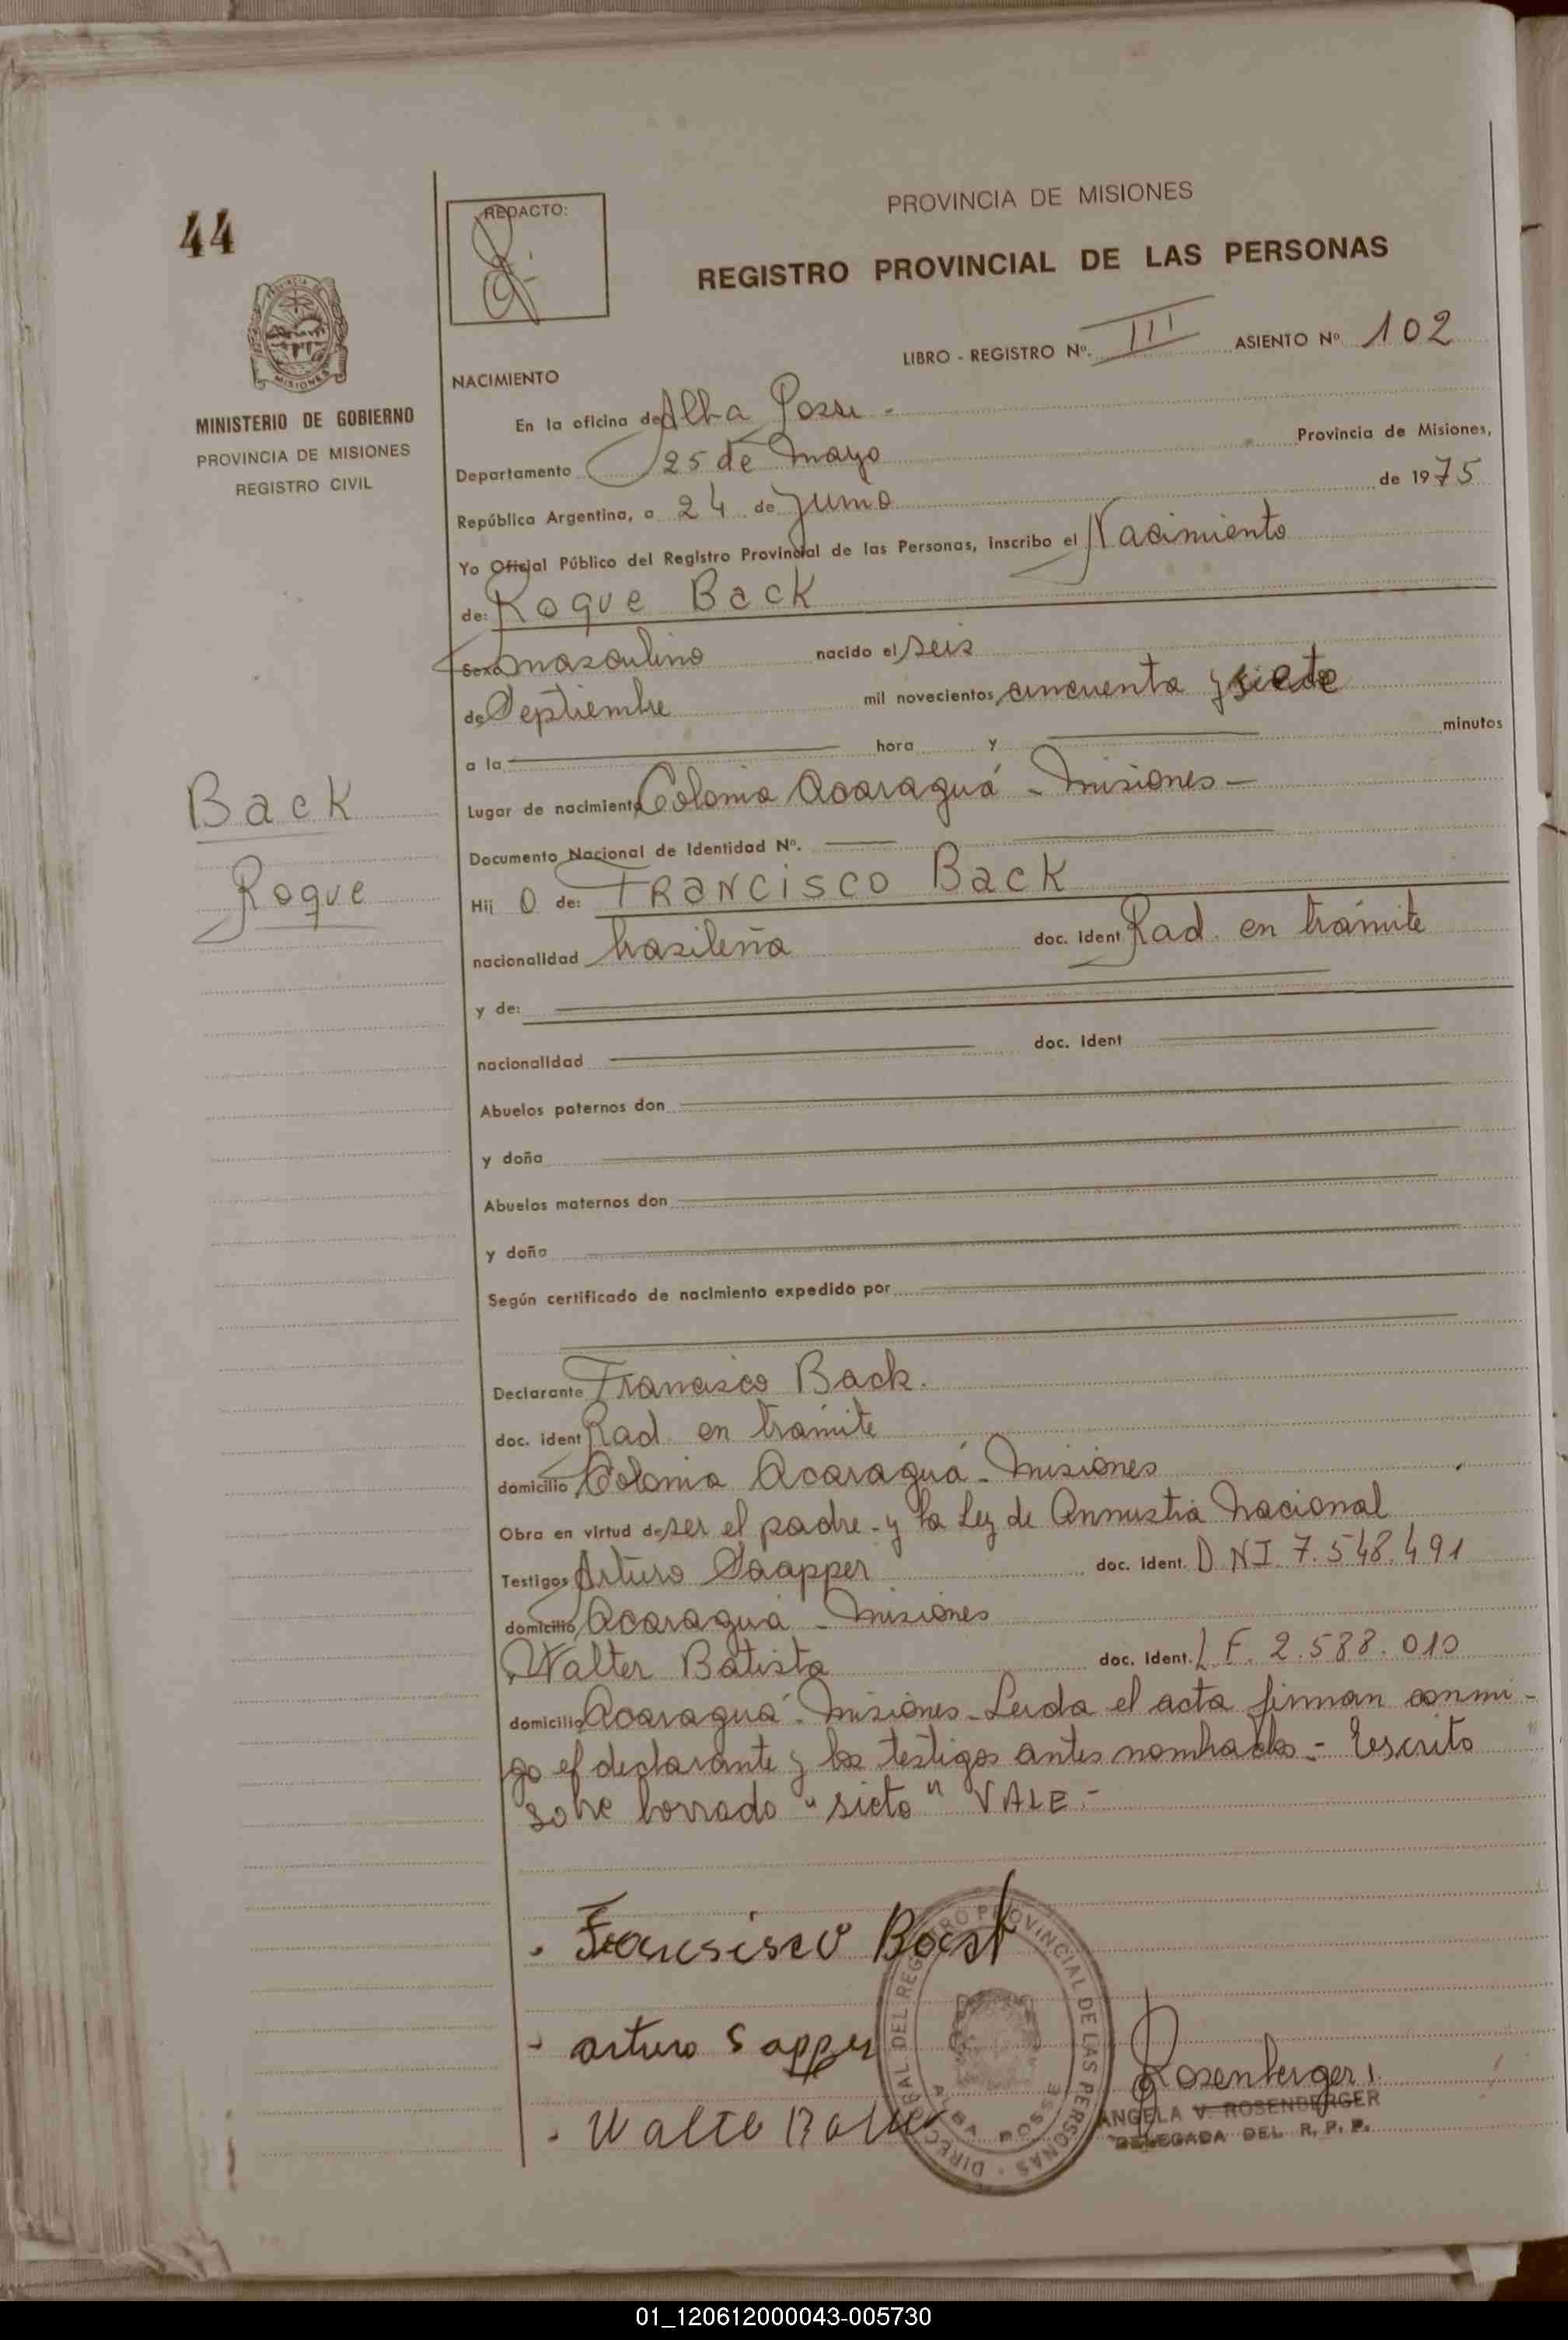 44
REDACTO:
PROVINCIA DE MISIONES
REGISTRO PROVINCIAL DE LAS PERSONAS
LIBRO - REGISTRO Nº. III ASIENTO Nº 102
MISIONES
MINISTERIO DE GOBIERNO
PROVINCIA DE MISIONES
REGISTRO CIVIL
NACIMIENTO
En la oficina de Alba Posse -
Departamento 25 de Mayo Provincia de Misiones,
República Argentina, a 24 de Junio de 1975
Yo Oficial Público del Registro Provincial de las Personas, inscribo el Nacimiento
de: Roque Back
Sexo masculino nacido el seis
de Septiembre mil novecientos cincuenta y siete
a la hora y minutos
Back
Roque
Lugar de nacimiento Colonia Acaraguá - Misiones -
Documento Nacional de Identidad Nº.
Hij o de: FRANCISCO Back
nacionalidad brasileña doc. Ident Rad. en trámite
y de:
nacionalidad doc. Ident
Abuelos paternos don
y doña
Abuelos maternos don
y doña
Según certificado de nacimiento expedido por
Declarante Francisco Back.
doc. ident Rad. en trámite
domicilio Colonia Acaraguá - Misiones
Obra en virtud de ser el padre - y la Ley de Amnustia Nacional
Testigos Arturo Saapper doc. ident. DNI 7.548.491
domicilio Acaraguá - Misiones
Walter Batista doc. ident. L.E. 2.588.010
domicilio Acaraguá - Misiones - Leida el acta firman conmi-
go el declarante y los testigos antes nombrados - Escrito
sobre borrado "siete" VALE.-
Francisco Back
arturo Sapper
Rosenberger
ANGELA V. ROSENBERGER
DELEGADA DEL R. P. P.
DIRECC RAL DEL REGISTRO PROVINCIAL DE LAS PERSONAS
ALBA POSSE
01_120612000043-005730